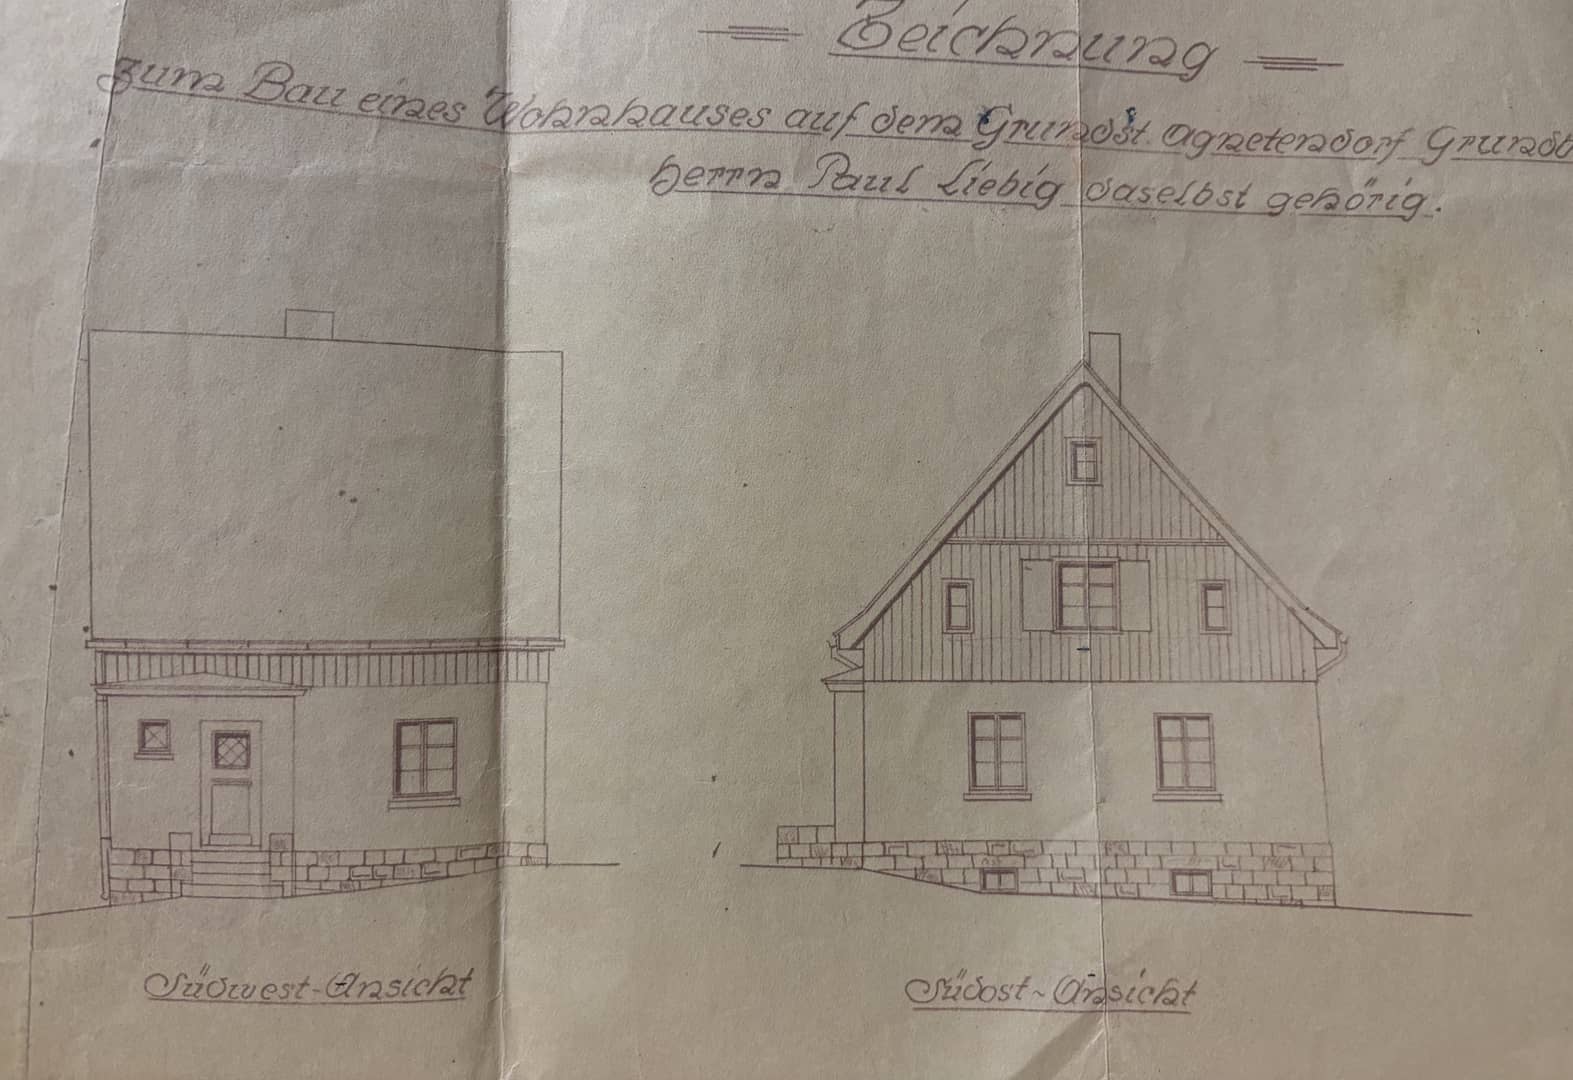 Zeichnung
zum Bau eines Wohnhauses auf dem Grundst. Agnetendorf Grundb
Herrn Paul Liebig daselbst gehörig.
Südwest-Ansicht
Südost-Ansicht